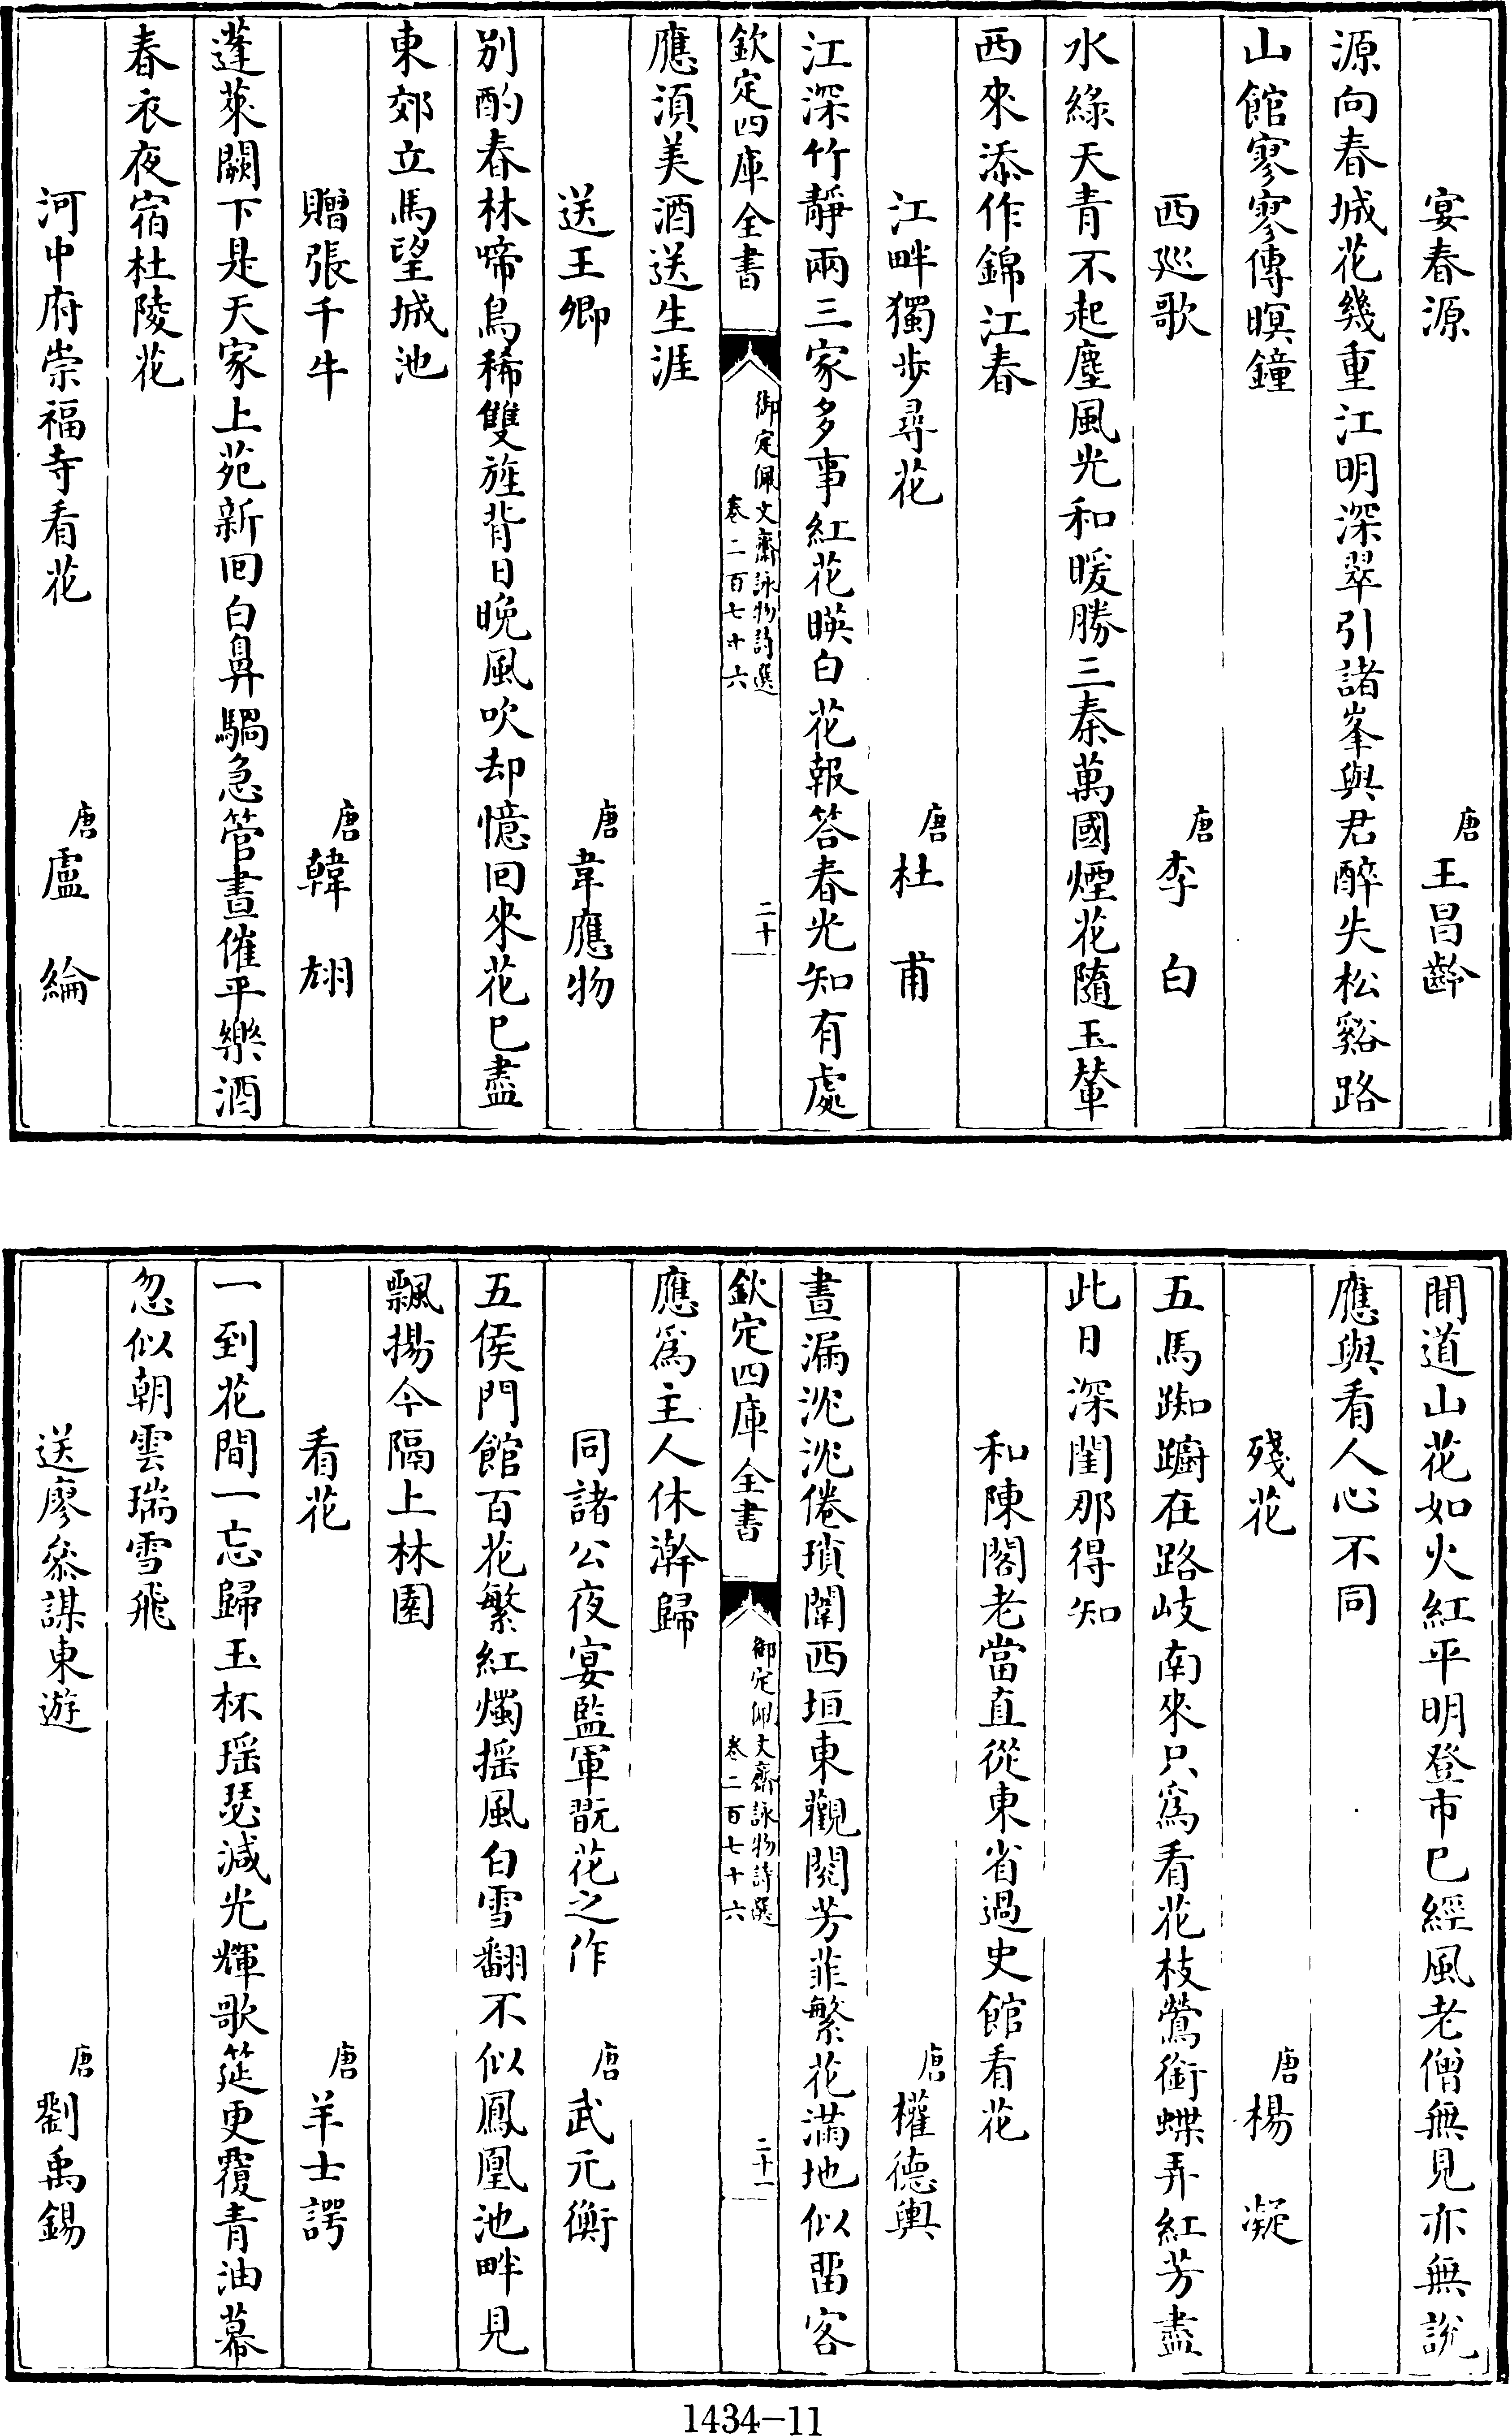 宴春源　唐王昌齡
源向春城花幾重江明深翠引諸峯與君醉失松谿路
山館寥寥傳暝鐘
西廵歌　唐李白
水綠天青不起塵風光和暖勝三秦萬國煙花隨玉輦
西來添作錦江春
江畔獨步尋花　唐杜甫
江深竹靜兩三家多事紅花暎白花報答春光知有處
欽定四庫全書　御定佩文齋詠物詩選　卷二百七十六　二十
應湏美酒送生涯
送王卿　唐韋應物
别酌春林啼鳥稀雙旌背日晚風吹却憶回來花巳盡
東郊立馬望城池
贈張千牛　唐韓翃
蓬萊闕下是天家上苑新回白鼻騧急管晝催平樂酒
春衣夜宿杜陵花
河中府崇福寺看花　唐盧綸
聞道山花如火紅平明登市巳經風老僧無見亦無說
應與看人心不同
殘花　唐楊凝
五馬踟躕在路岐南來只為看花枝鶯銜蝶弄紅芳盡
此日深閨那得知
和陳閣老當直從東省過史館看花
唐權德輿
晝漏沈沈倦瑣闈西垣東觀閱芳菲繁花滿地似留客
欽定四庫全書　御定佩文齋詠物詩選　卷二百七十六　二十一
應爲主人休澣歸
同諸公夜宴監軍翫花之作　唐武元衡
五侯門館百花繁紅燭揺風白雪翻不似鳳凰池畔見
飄揚今隔上林園
看花　唐羊士諤
一到花間一忘歸玉杯瑶瑟減光輝歌筵更覆青油幕
忽似朝雲瑞雪飛
送廖叅謀東遊　唐劉禹錫
1434-11